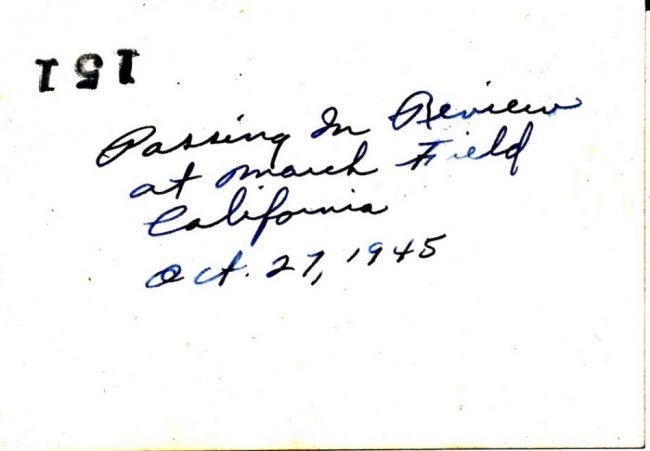 151
Passing In Review
at March Field
California
Oct. 27, 1945